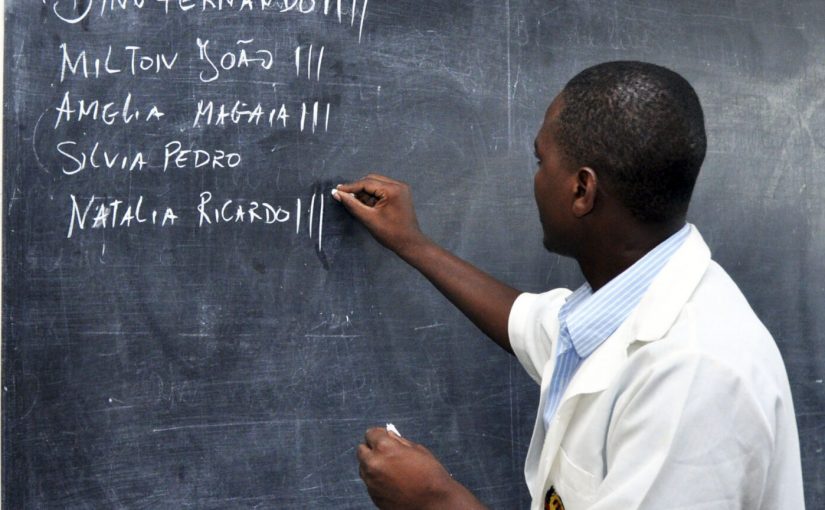 FERNANDO ||||
MILTON JOÃO |||
AMELIA MAGAIA |||
SILVIA PEDRO
NATALIA RICARDO |||